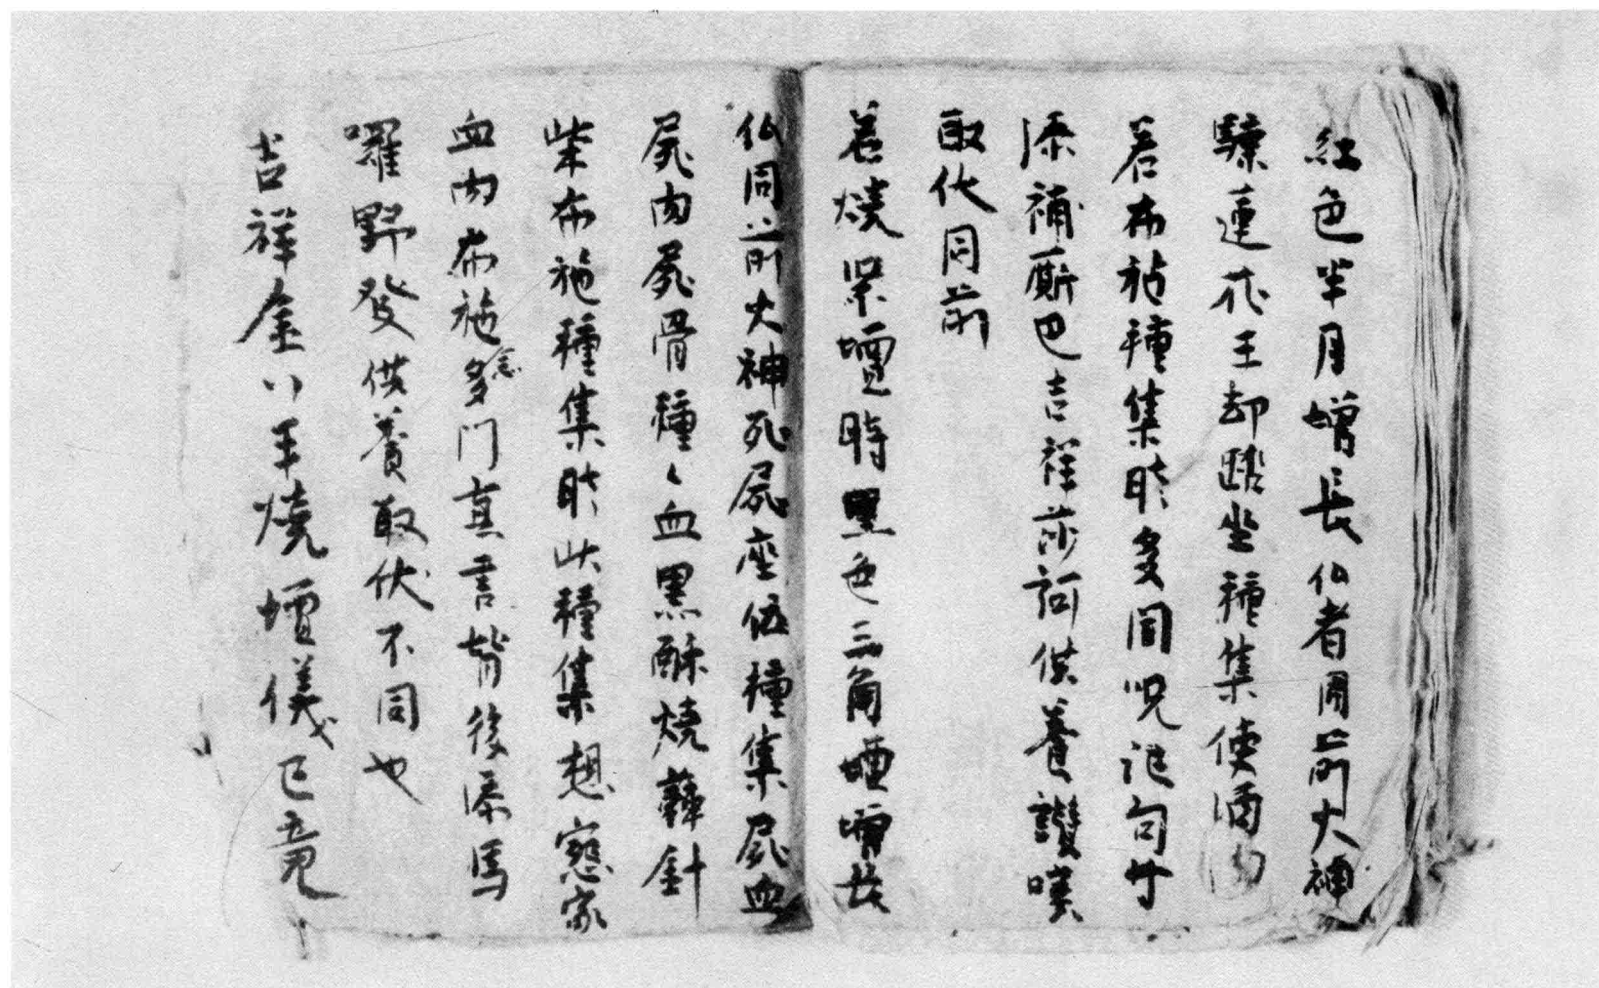 紅色半月增長仏者同前大神
騍蓮花王却踏坐種集使酒肉
若布施種集時多同呪記句廿
添補廝巴吉祥莎訶供養讚嘆
取伏同前
若燒黑壇時黑色三角壇增長
仏同前火神死屍座伍種集屍血
屍肉屍骨種々血黑酥燒蕀針
柴布施種集時此種集想冤家
血肉布施念多門真言背後添馬
囉野發供養取伏不同也
吉祥金剛手燒壇儀已竟